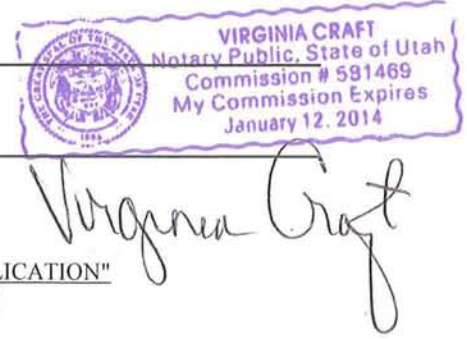 VIRGINIA CRAFT
Notary Public, State of Utah
Commission # 581469
My Commission Expires
January 12, 2014
Virginia Craft
LICATION"